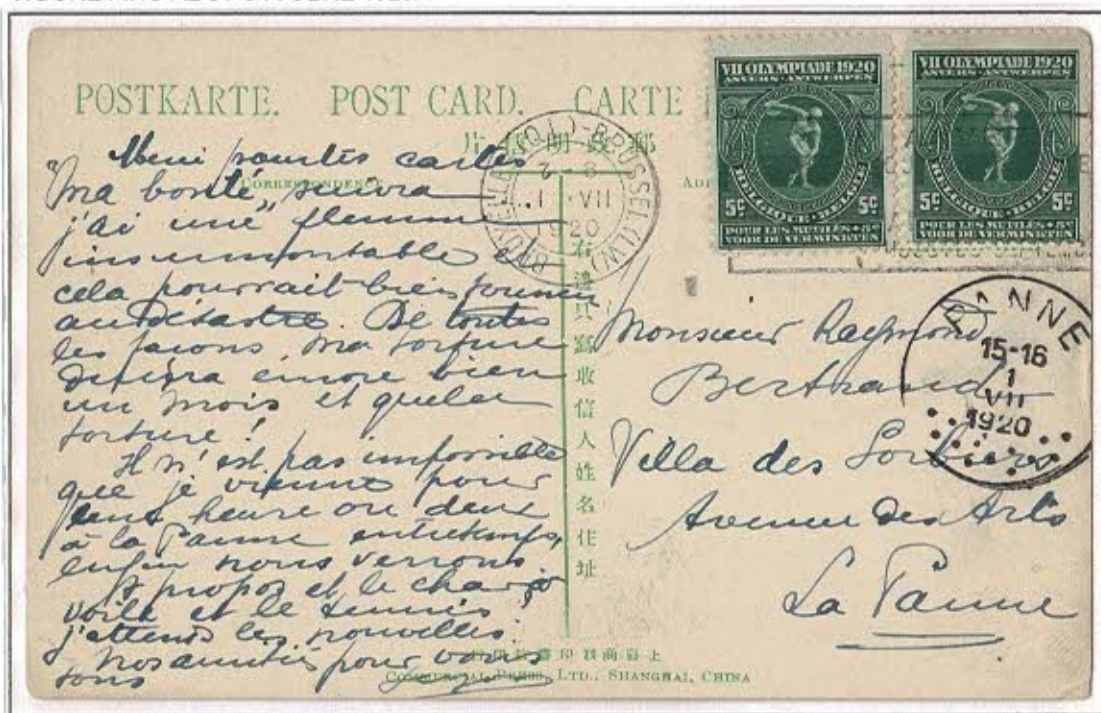 POSTKARTE. POST CARD. CARTE
片信明政郵
CORRESPONDENCE
VII OLYMPIADE 1920
ANVERS·ANTWERPEN
5c 5c
BELGIQUE·BELGIË
POUR LES MUTILES+5c
VOOR DE VERMINKTEN
VII OLYMPIADE 1920
ANVERS·ANTWERPEN
5c 5c
BELGIQUE·BELGIË
POUR LES MUTILES+5c
VOOR DE VERMINKTEN
1 VII
1920
PANNE
15-16
1
VII
1920
Merci pour tes cartes
"Ma bonté" suivra
j'ai une flemme
insurmontable &
cela pourrait bien tourner
au désastre. De toutes
les façons, ma torture
durera encore bien
un mois et quelle
torture!
Il n'est pas impossible
que je vienne pour
une heure ou deux
à la Panne entretemps,
enfin nous verrons.
A propos et le char à
voile et le tennis?
j'attends les nouvelles.
Nos amitiés pour vous
tous
右邊只寫收信人姓名住址
Monsieur Raymond
Bertrand
Villa des Sorbiers
Avenue des Arts
La Panne
COMMERCIAL PRESS, LTD., SHANGHAI, CHINA